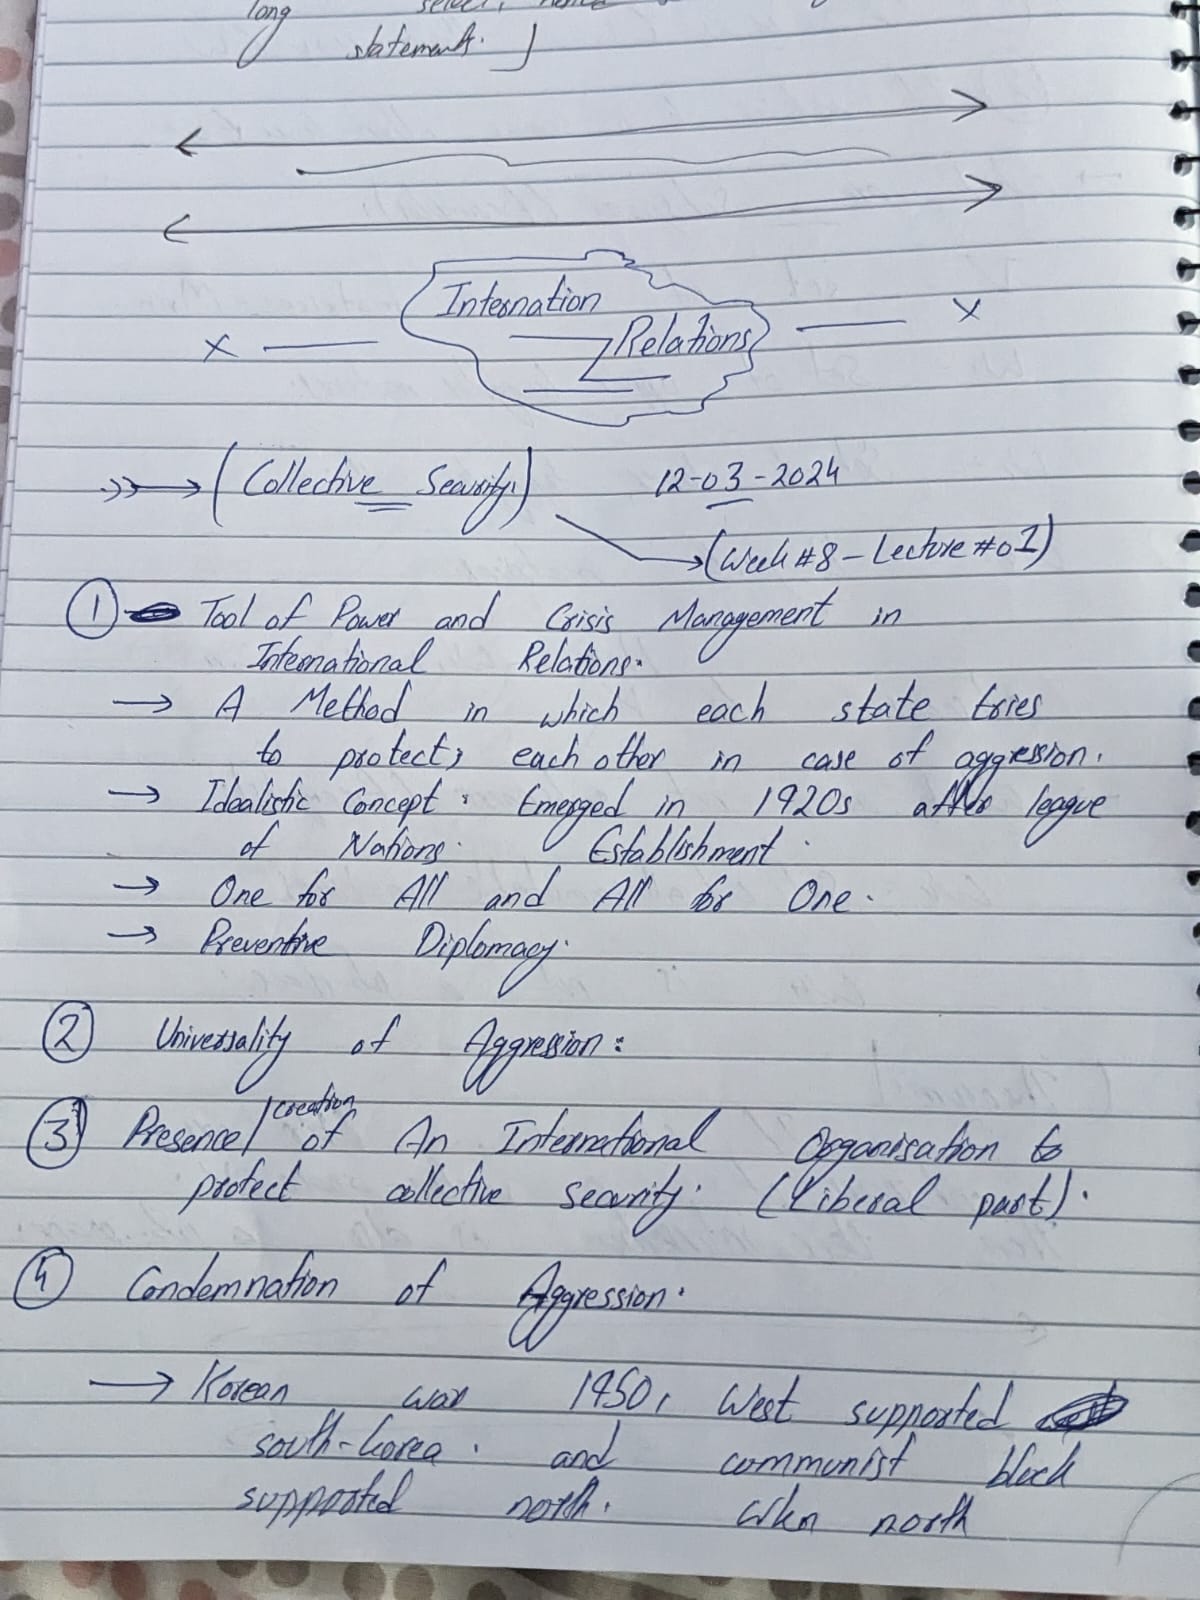 long select, hence
statement. ]
Internation
Relations
x — — x
(Collective Security.) 12-03-2024
(Week #8 - Lecture #01)
① Tool of Power and Crisis Management in
International Relations.
→ A Method in which each state tries
to protect, each other in case of aggression.
→ Idealistic Concept. Emerged in 1920s after league
of Nations. Establishment.
→ One for All and All for One.
→ Preventive Diplomacy.
② Universality of Aggression:
③ Presence/creation of An International Organisation to
protect collective security. (Liberal part).
④ Condemnation of Aggression.
→ Korean war 1950, West supported
south-korea. and communist block
supported north. When north